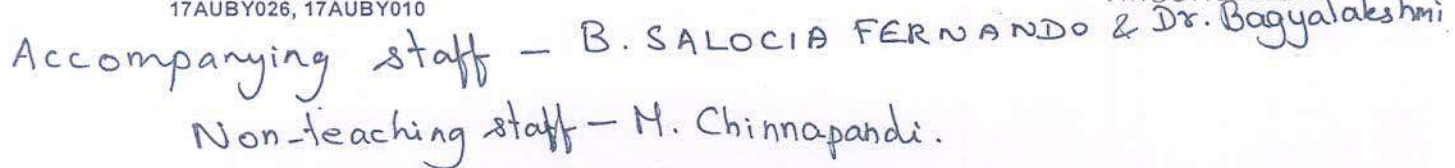 17AUBY026, 17AUBY010
Accompanying staff - B. SALOCIA FERNANDO & Dr. Bagyalakshmi.
Non-teaching staff - M. Chinnapandi.